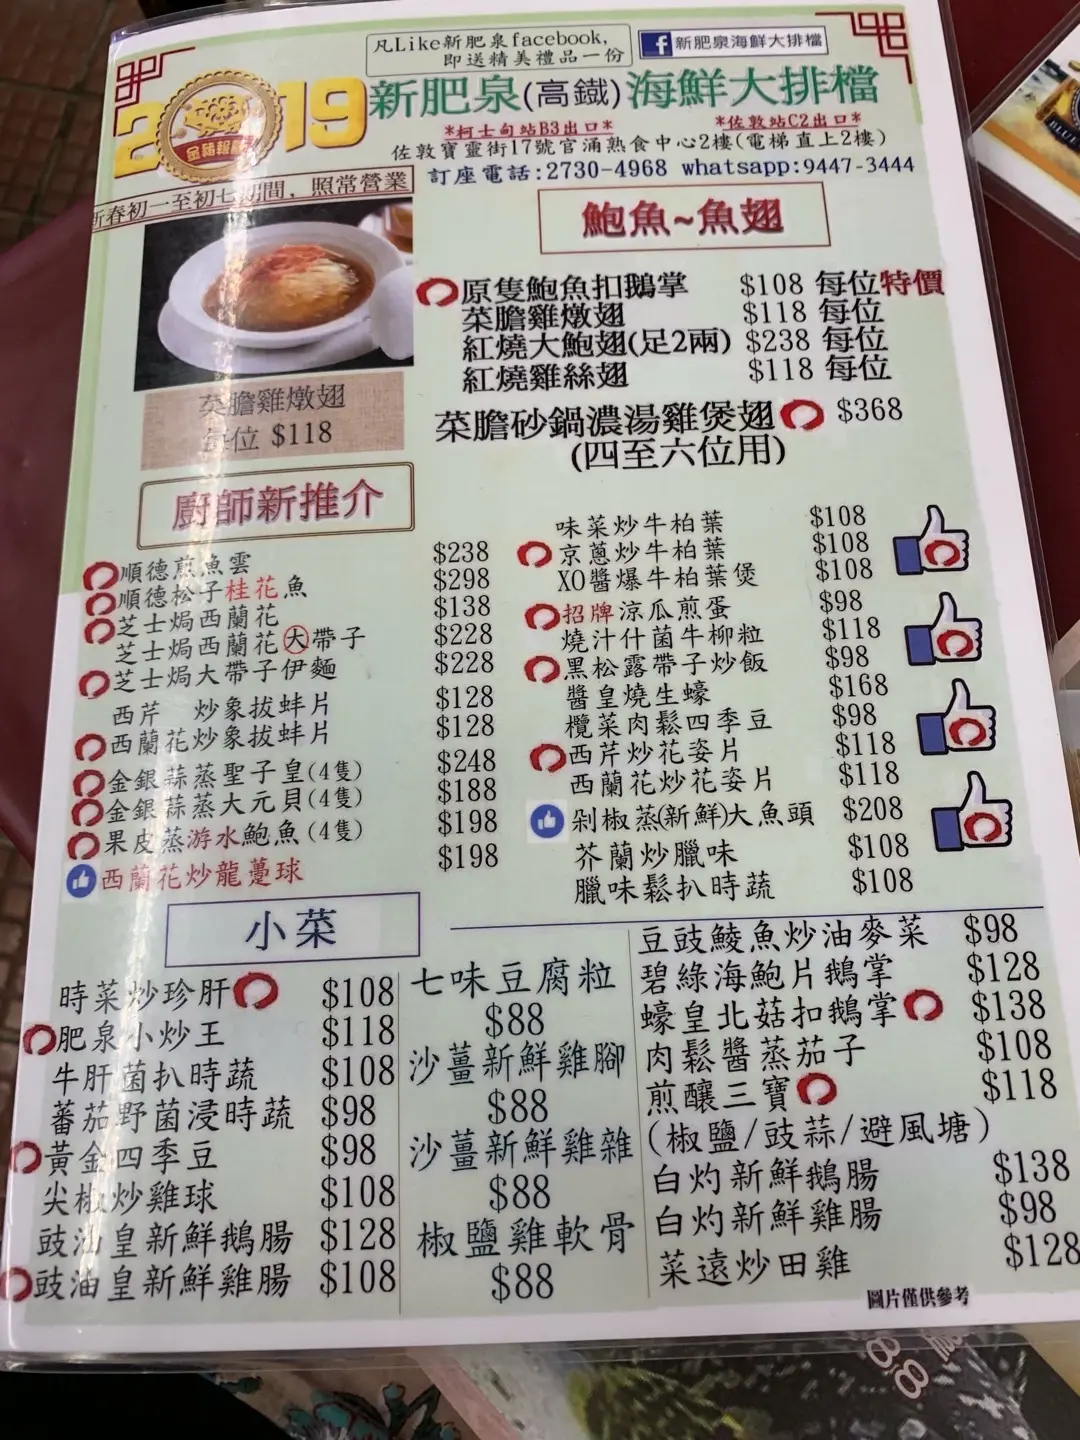 凡Like新肥泉facebook,
即送精美禮品一份
f 新肥泉海鮮大排檔
2019
金豬報喜
新肥泉(高鐵)海鮮大排檔
*柯士甸站B3出口* *佐敦站C2出口*
佐敦寶靈街17號官涌熟食中心2樓(電梯直上2樓)
訂座電話:2730-4968 whatsapp:9447-3444
新春初一至初七期間, 照常營業
菜膽雞燉翅
每位 $118
鮑魚~魚翅
原隻鮑魚扣鵝掌 $108 每位特價
菜膽雞燉翅 $118 每位
紅燒大鮑翅(足2兩) $238 每位
紅燒雞絲翅 $118 每位
菜膽砂鍋濃湯雞煲翅 $368
(四至六位用)
廚師新推介
順德煎魚雲 $238
順德松子桂花魚 $298
芝士焗西蘭花 $138
芝士焗西蘭花大帶子 $228
芝士焗大帶子伊麵 $228
西芹 炒象拔蚌片 $128
西蘭花炒象拔蚌片 $128
金銀蒜蒸聖子皇(4隻) $248
金銀蒜蒸大元貝(4隻) $188
果皮蒸游水鮑魚(4隻) $198
西蘭花炒龍躉球 $198
味菜炒牛柏葉 $108
京蔥炒牛柏葉 $108
XO醬爆牛柏葉煲 $108
招牌涼瓜煎蛋 $98
燒汁什菌牛柳粒 $118
黑松露帶子炒飯 $98
醬皇燒生蠔 $168
欖菜肉鬆四季豆 $98
西芹炒花姿片 $118
西蘭花炒花姿片 $118
剁椒蒸(新鮮)大魚頭 $208
芥蘭炒臘味 $108
臘味鬆扒時蔬 $108
小菜
時菜炒珍肝 $108
肥泉小炒王 $118
牛肝菌扒時蔬 $108
蕃茄野菌浸時蔬 $98
黃金四季豆 $98
尖椒炒雞球 $108
豉油皇新鮮鵝腸 $128
豉油皇新鮮雞腸 $108
七味豆腐粒
$88
沙薑新鮮雞腳
$88
沙薑新鮮雞雜
$88
椒鹽雞軟骨
$88
豆豉鯪魚炒油麥菜 $98
碧綠海鮑片鵝掌 $128
蠔皇北菇扣鵝掌 $138
肉鬆醬蒸茄子 $108
煎釀三寶 $118
(椒鹽/豉蒜/避風塘)
白灼新鮮鵝腸 $138
白灼新鮮雞腸 $98
菜遠炒田雞 $128
圖片僅供參考